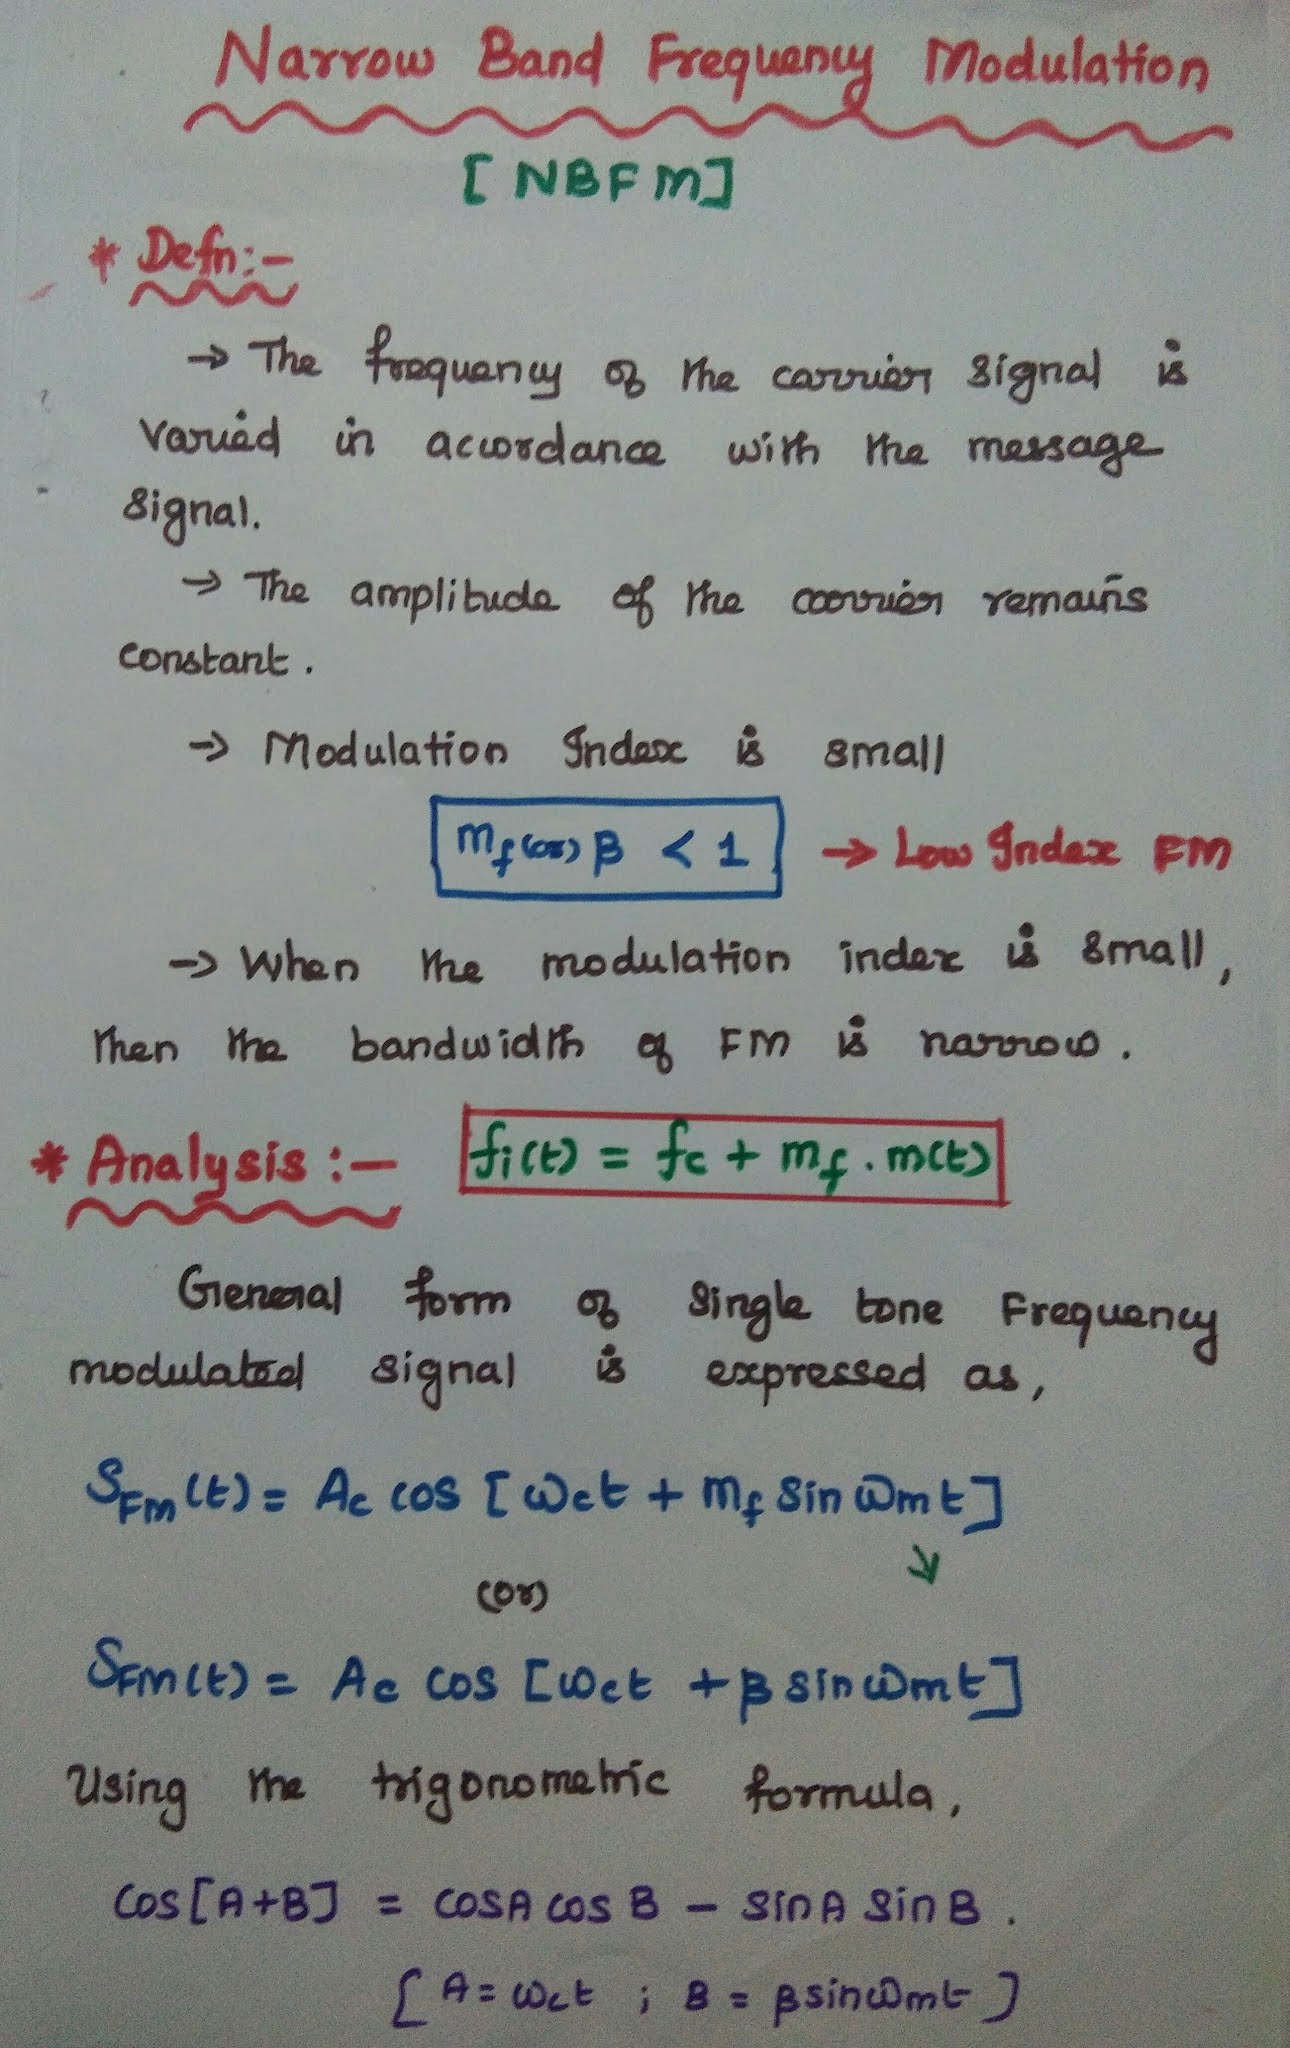 Narrow Band Frequency Modulation
[NBFM]
* Defn:-
→ The frequency of the carrier signal is
varied in accordance with the message
signal.
→ The amplitude of the carrier remains
constant.
→ Modulation Index is small
mf (or) β < 1 → Low Index FM
→ When the modulation index is small,
then the bandwidth of FM is narrow.
* Analysis :- fi(t) = fc + mf . m(t)
General form of single tone Frequency
modulated signal is expressed as,
SFM(t) = Ac cos [ωct + mf sin ωmt]
↘
(or)
SFM(t) = Ac cos [ωct + β sin ωmt]
Using the trigonometric formula,
cos[A+B] = cosA cosB - sinA sinB.
[A = ωct ; B = β sin ωmt]